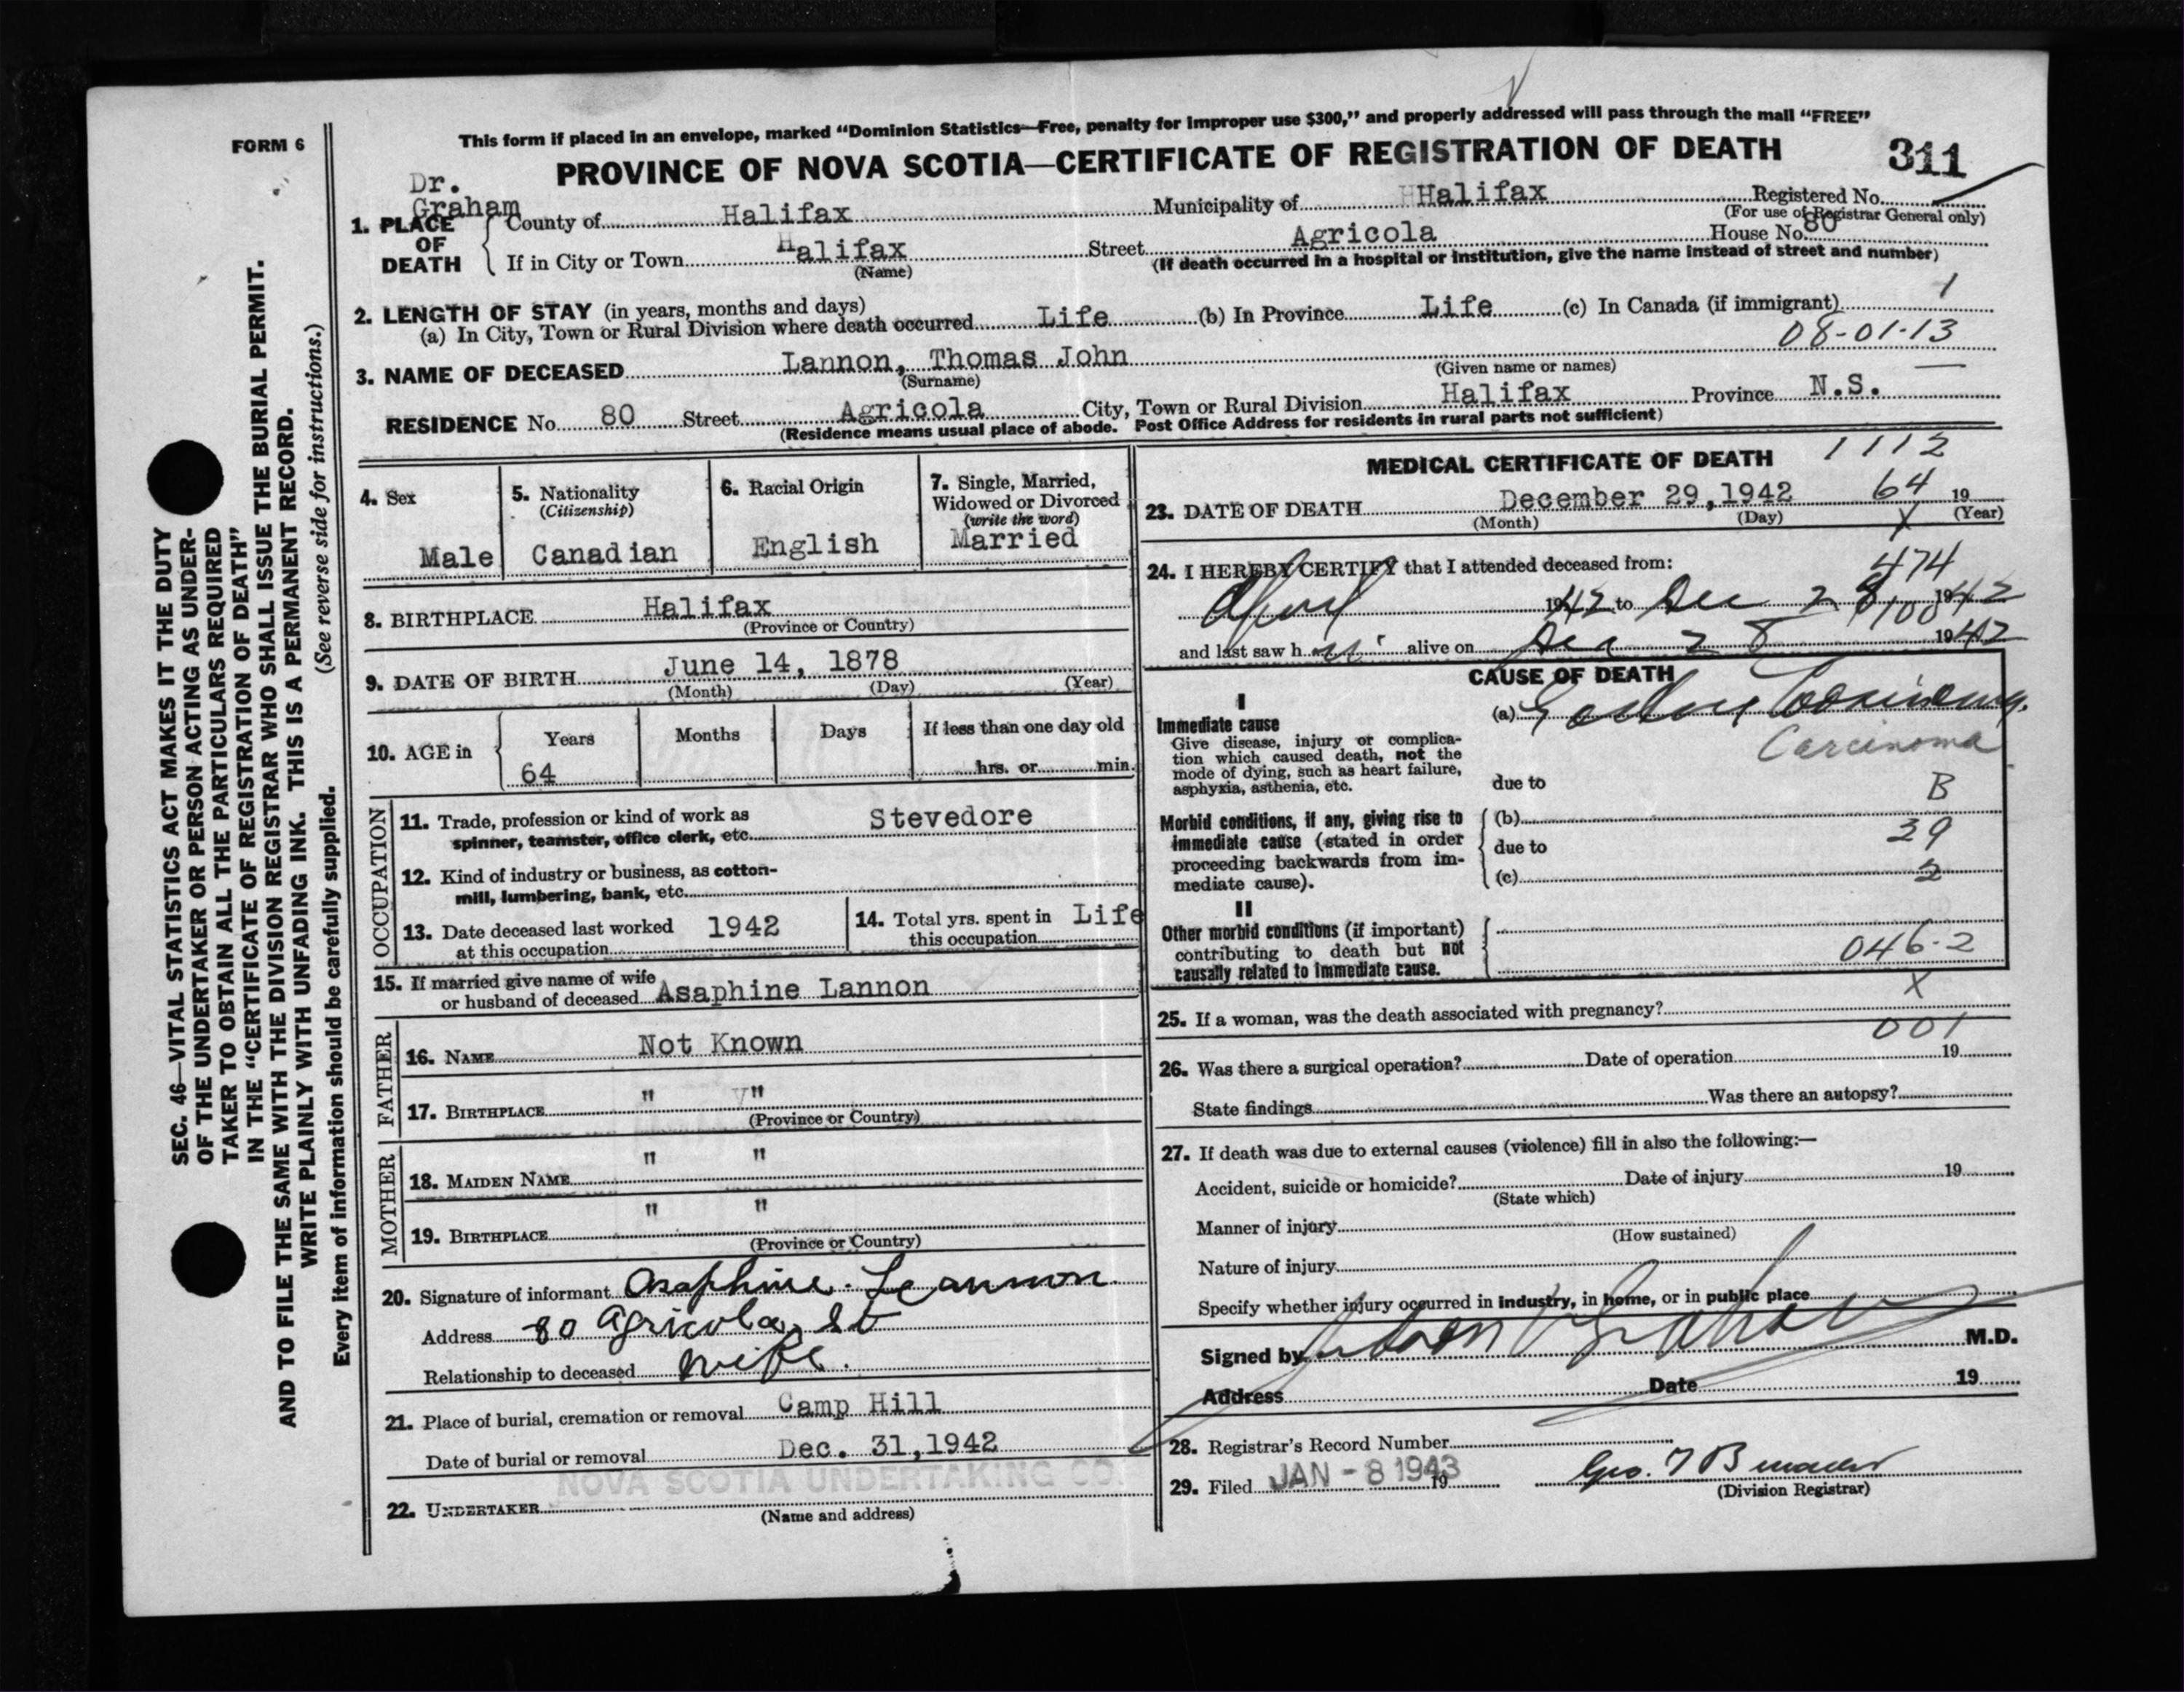 FORM 6
This form if placed in an envelope, marked “Dominion Statistics—Free, penalty for improper use $300,” and properly addressed will pass through the mail “FREE”
PROVINCE OF NOVA SCOTIA—CERTIFICATE OF REGISTRATION OF DEATH 311
Dr. Graham
1. PLACE OF DEATH
County of Halifax Municipality of Halifax Registered No.
(For use of Registrar General only)
If in City or Town Halifax Street Agricola House No. 80
(Name) (If death occurred in a hospital or institution, give the name instead of street and number)
2. LENGTH OF STAY (in years, months and days)
(a) In City, Town or Rural Division where death occurred Life (b) In Province Life (c) In Canada (if immigrant) 1
08-01-13
3. NAME OF DECEASED Lannon, Thomas John
(Surname) (Given name or names)
RESIDENCE No. 80 Street Agricola City, Town or Rural Division Halifax Province N.S.
(Residence means usual place of abode. Post Office Address for residents in rural parts not sufficient)
4. Sex Male
5. Nationality (Citizenship) Canadian
6. Racial Origin English
7. Single, Married, Widowed or Divorced (write the word) Married
8. BIRTHPLACE Halifax
(Province or Country)
9. DATE OF BIRTH June 14, 1878
(Month) (Day) (Year)
10. AGE in Years Months Days If less than one day old
64 hrs. or min.
OCCUPATION
11. Trade, profession or kind of work as spinner, teamster, office clerk, etc. Stevedore
12. Kind of industry or business, as cotton-mill, lumbering, bank, etc.
13. Date deceased last worked at this occupation 1942
14. Total yrs. spent in this occupation Life
15. If married give name of wife or husband of deceased Asaphine Lannon
FATHER
16. NAME Not Known
17. BIRTHPLACE " "
(Province or Country)
MOTHER
18. MAIDEN NAME " "
19. BIRTHPLACE " "
(Province or Country)
20. Signature of informant Asaphine Lannon
Address 80 Agricola St
Relationship to deceased wife.
21. Place of burial, cremation or removal Camp Hill
Date of burial or removal Dec. 31, 1942
NOVA SCOTIA UNDERTAKING CO.
22. UNDERTAKER
(Name and address)
MEDICAL CERTIFICATE OF DEATH 1112
23. DATE OF DEATH December 29, 1942 64 19
(Month) (Day) X (Year)
24. I HEREBY CERTIFY that I attended deceased from: 474
April 1942 to Dec 28 1942
100
and last saw h alive on Dec 28 1942
CAUSE OF DEATH
I
Immediate cause
Give disease, injury or complication which caused death, not the mode of dying, such as heart failure, asphyxia, asthenia, etc.
(a)
Carcinoma
due to B
Morbid conditions, if any, giving rise to immediate cause (stated in order proceeding backwards from immediate cause).
(b)
due to 39
(c) 2
II
Other morbid conditions (if important) contributing to death but not causally related to immediate cause.
046-2
X
25. If a woman, was the death associated with pregnancy?
001
26. Was there a surgical operation? Date of operation 19
State findings Was there an autopsy?
27. If death was due to external causes (violence) fill in also the following:—
Accident, suicide or homicide? Date of injury 19
(State which)
Manner of injury
(How sustained)
Nature of injury
Specify whether injury occurred in industry, in home, or in public place
Signed by Graham M.D.
Address Date 19
28. Registrar's Record Number
29. Filed JAN - 8 1943 19 Geo.
(Division Registrar)
SEC. 46—VITAL STATISTICS ACT MAKES IT THE DUTY
OF THE UNDERTAKER OR PERSON ACTING AS UNDER-
TAKER TO OBTAIN ALL THE PARTICULARS REQUIRED
IN THE “CERTIFICATE OF REGISTRATION OF DEATH”
AND TO FILE THE SAME WITH THE DIVISION REGISTRAR WHO SHALL ISSUE THE BURIAL PERMIT.
WRITE PLAINLY WITH UNFADING INK. THIS IS A PERMANENT RECORD.
Every item of information should be carefully supplied. (See reverse side for instructions.)